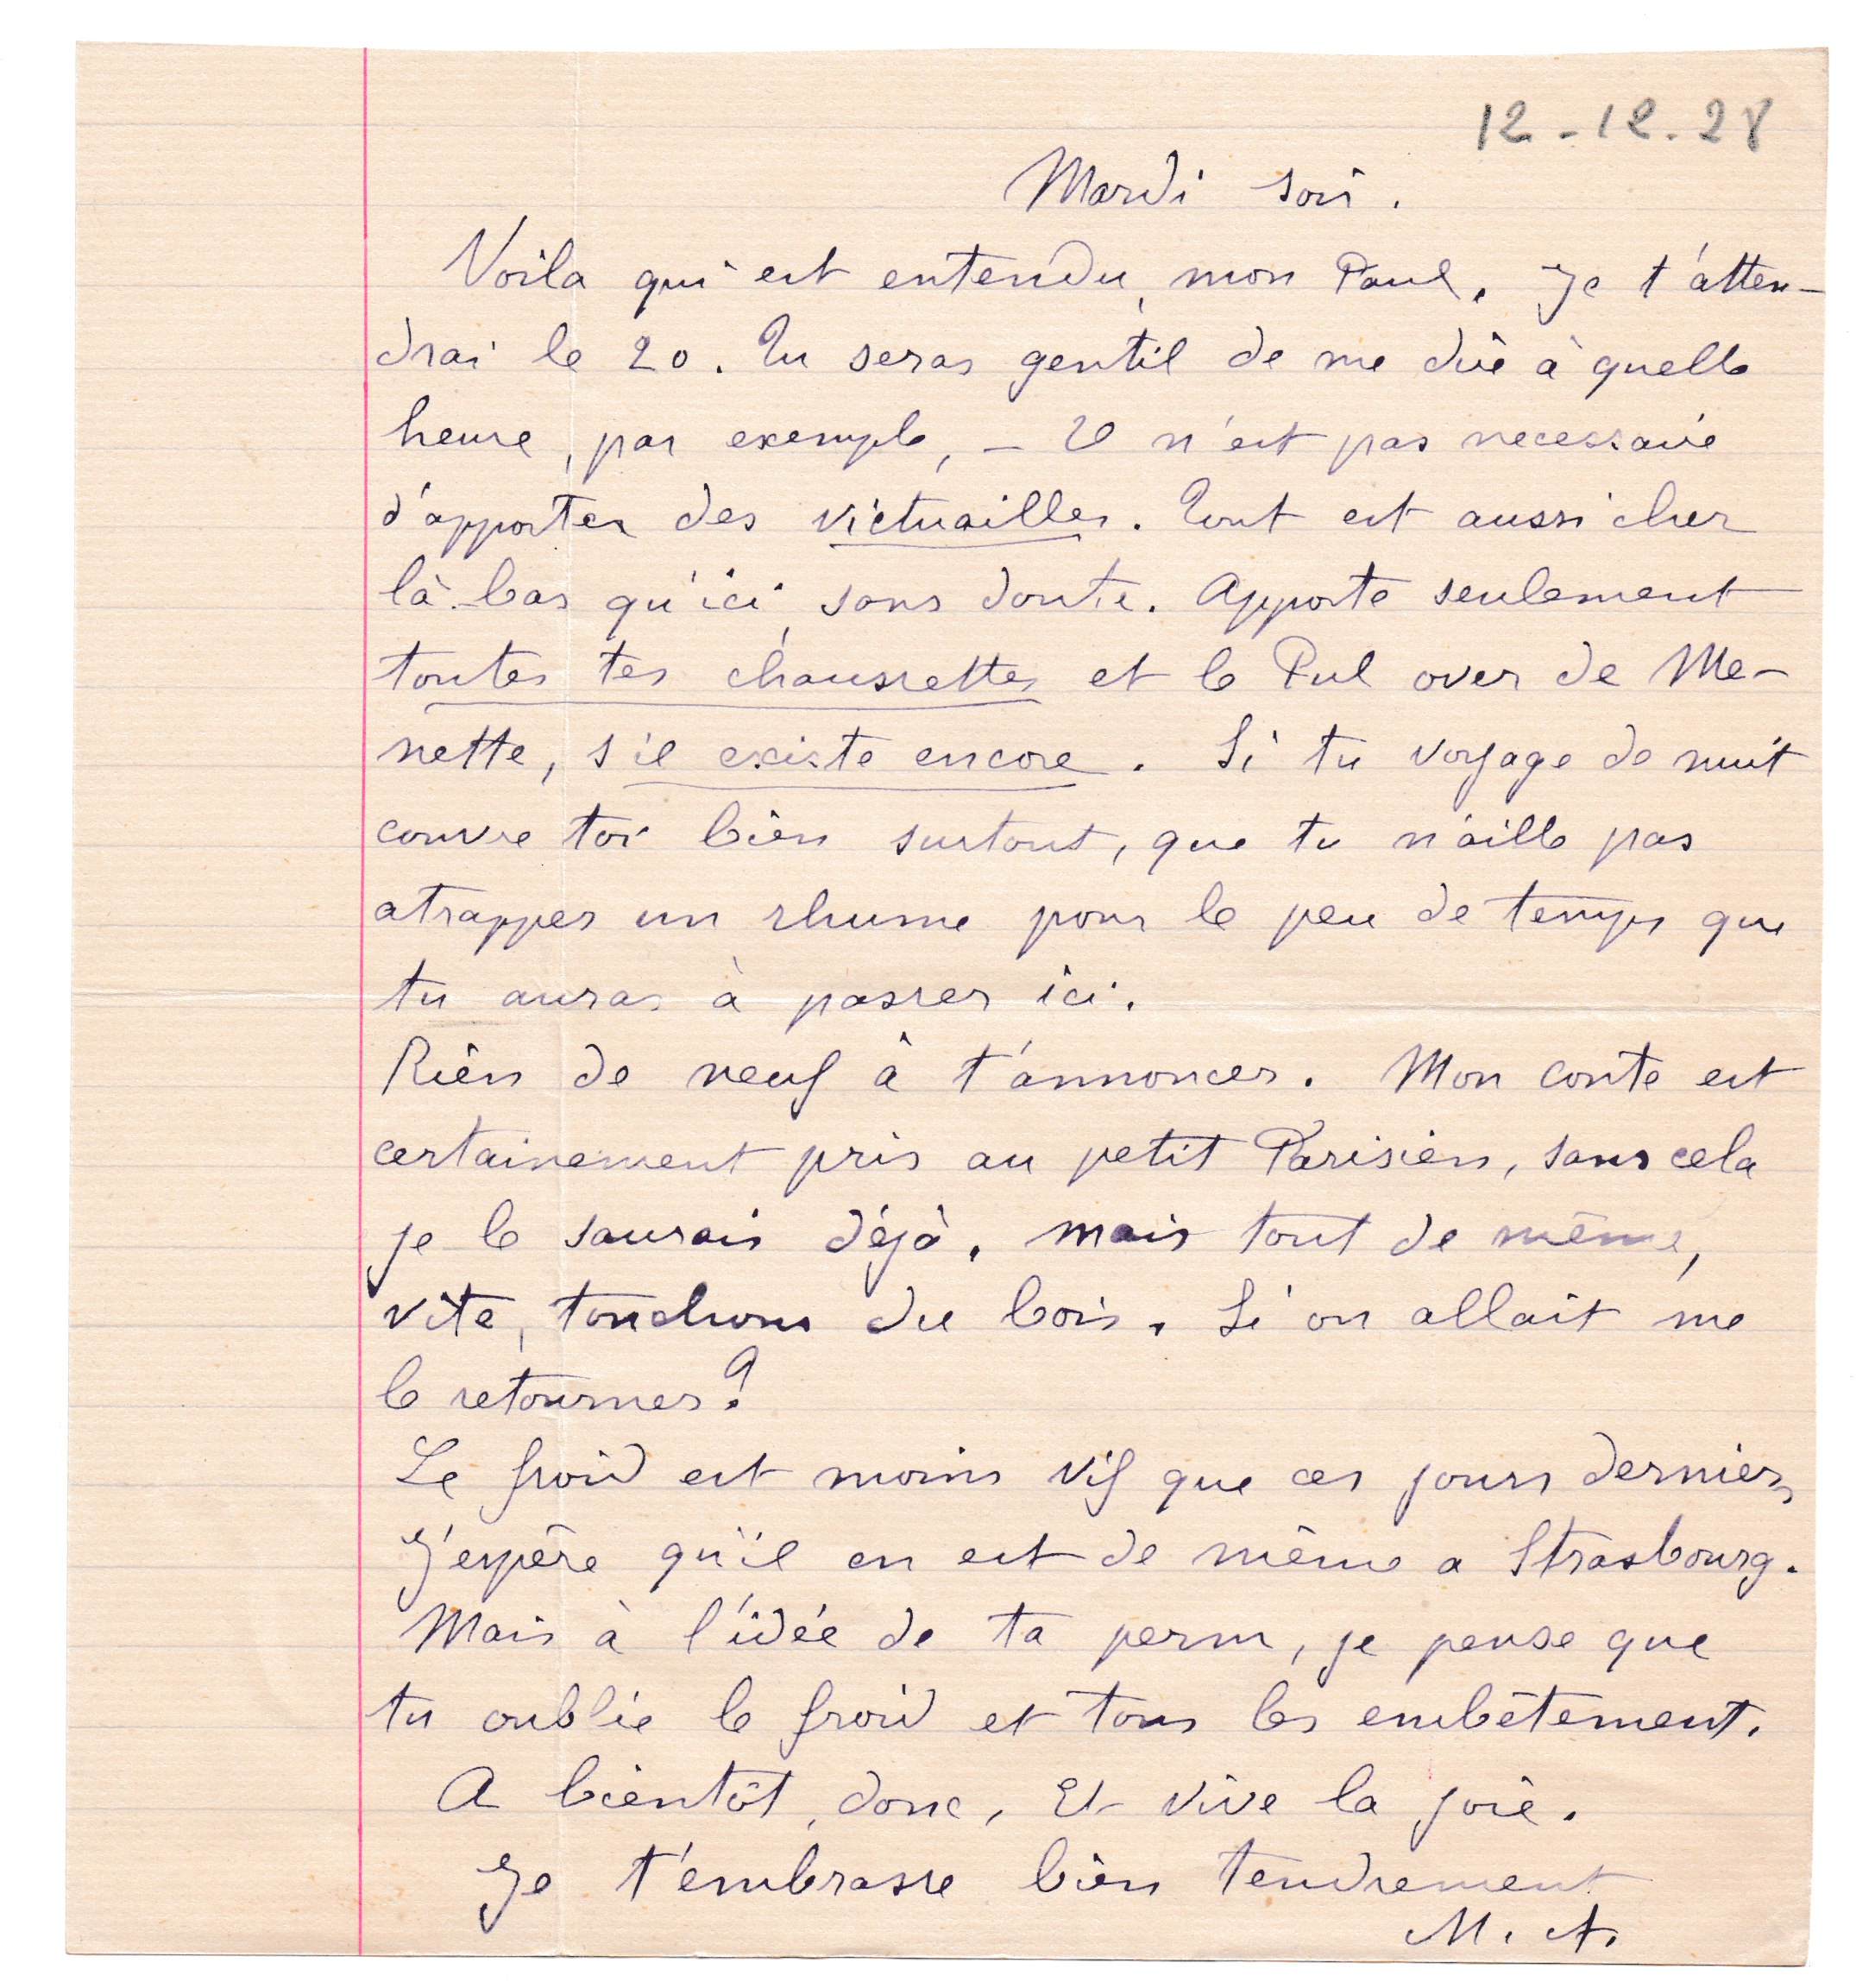 12-12.28
Mardi soir.
Voila qui est entendu, mon Paul. Je t'atten-
drai le 20. Tu seras gentil de me dire à quelle
heure, par exemple, - Il n'est pas necessaire
d'apporter des victuailles. Tout est aussi cher
là-bas qu'ici, sans doute. Apporte seulement
toutes tes chaussettes et le Pul over de Me-
nette, s'il existe encore. Si tu voyage de nuit
couvre toi bien surtout, que tu n'aille pas
atrapper un rhume pour le peu de temps que
tu auras à passer ici.
Rien de neuf à t'annoncer. Mon conte est
certainement pris au petit Parisien, sans cela
je le saurais déjà. Mais tout de même,
vite, touchons du bois. Si on allait me
le retourner?
Le froid est moins vif que ces jours derniers
J'espère qu'il en est de même a Strasbourg.
Mais à l'idée de ta perm, je pense que
tu oublie le froid et tous les embêtement.
A bientôt, donc, Et vive la joie.
Je t'embrasse bien tendrement
M. A.